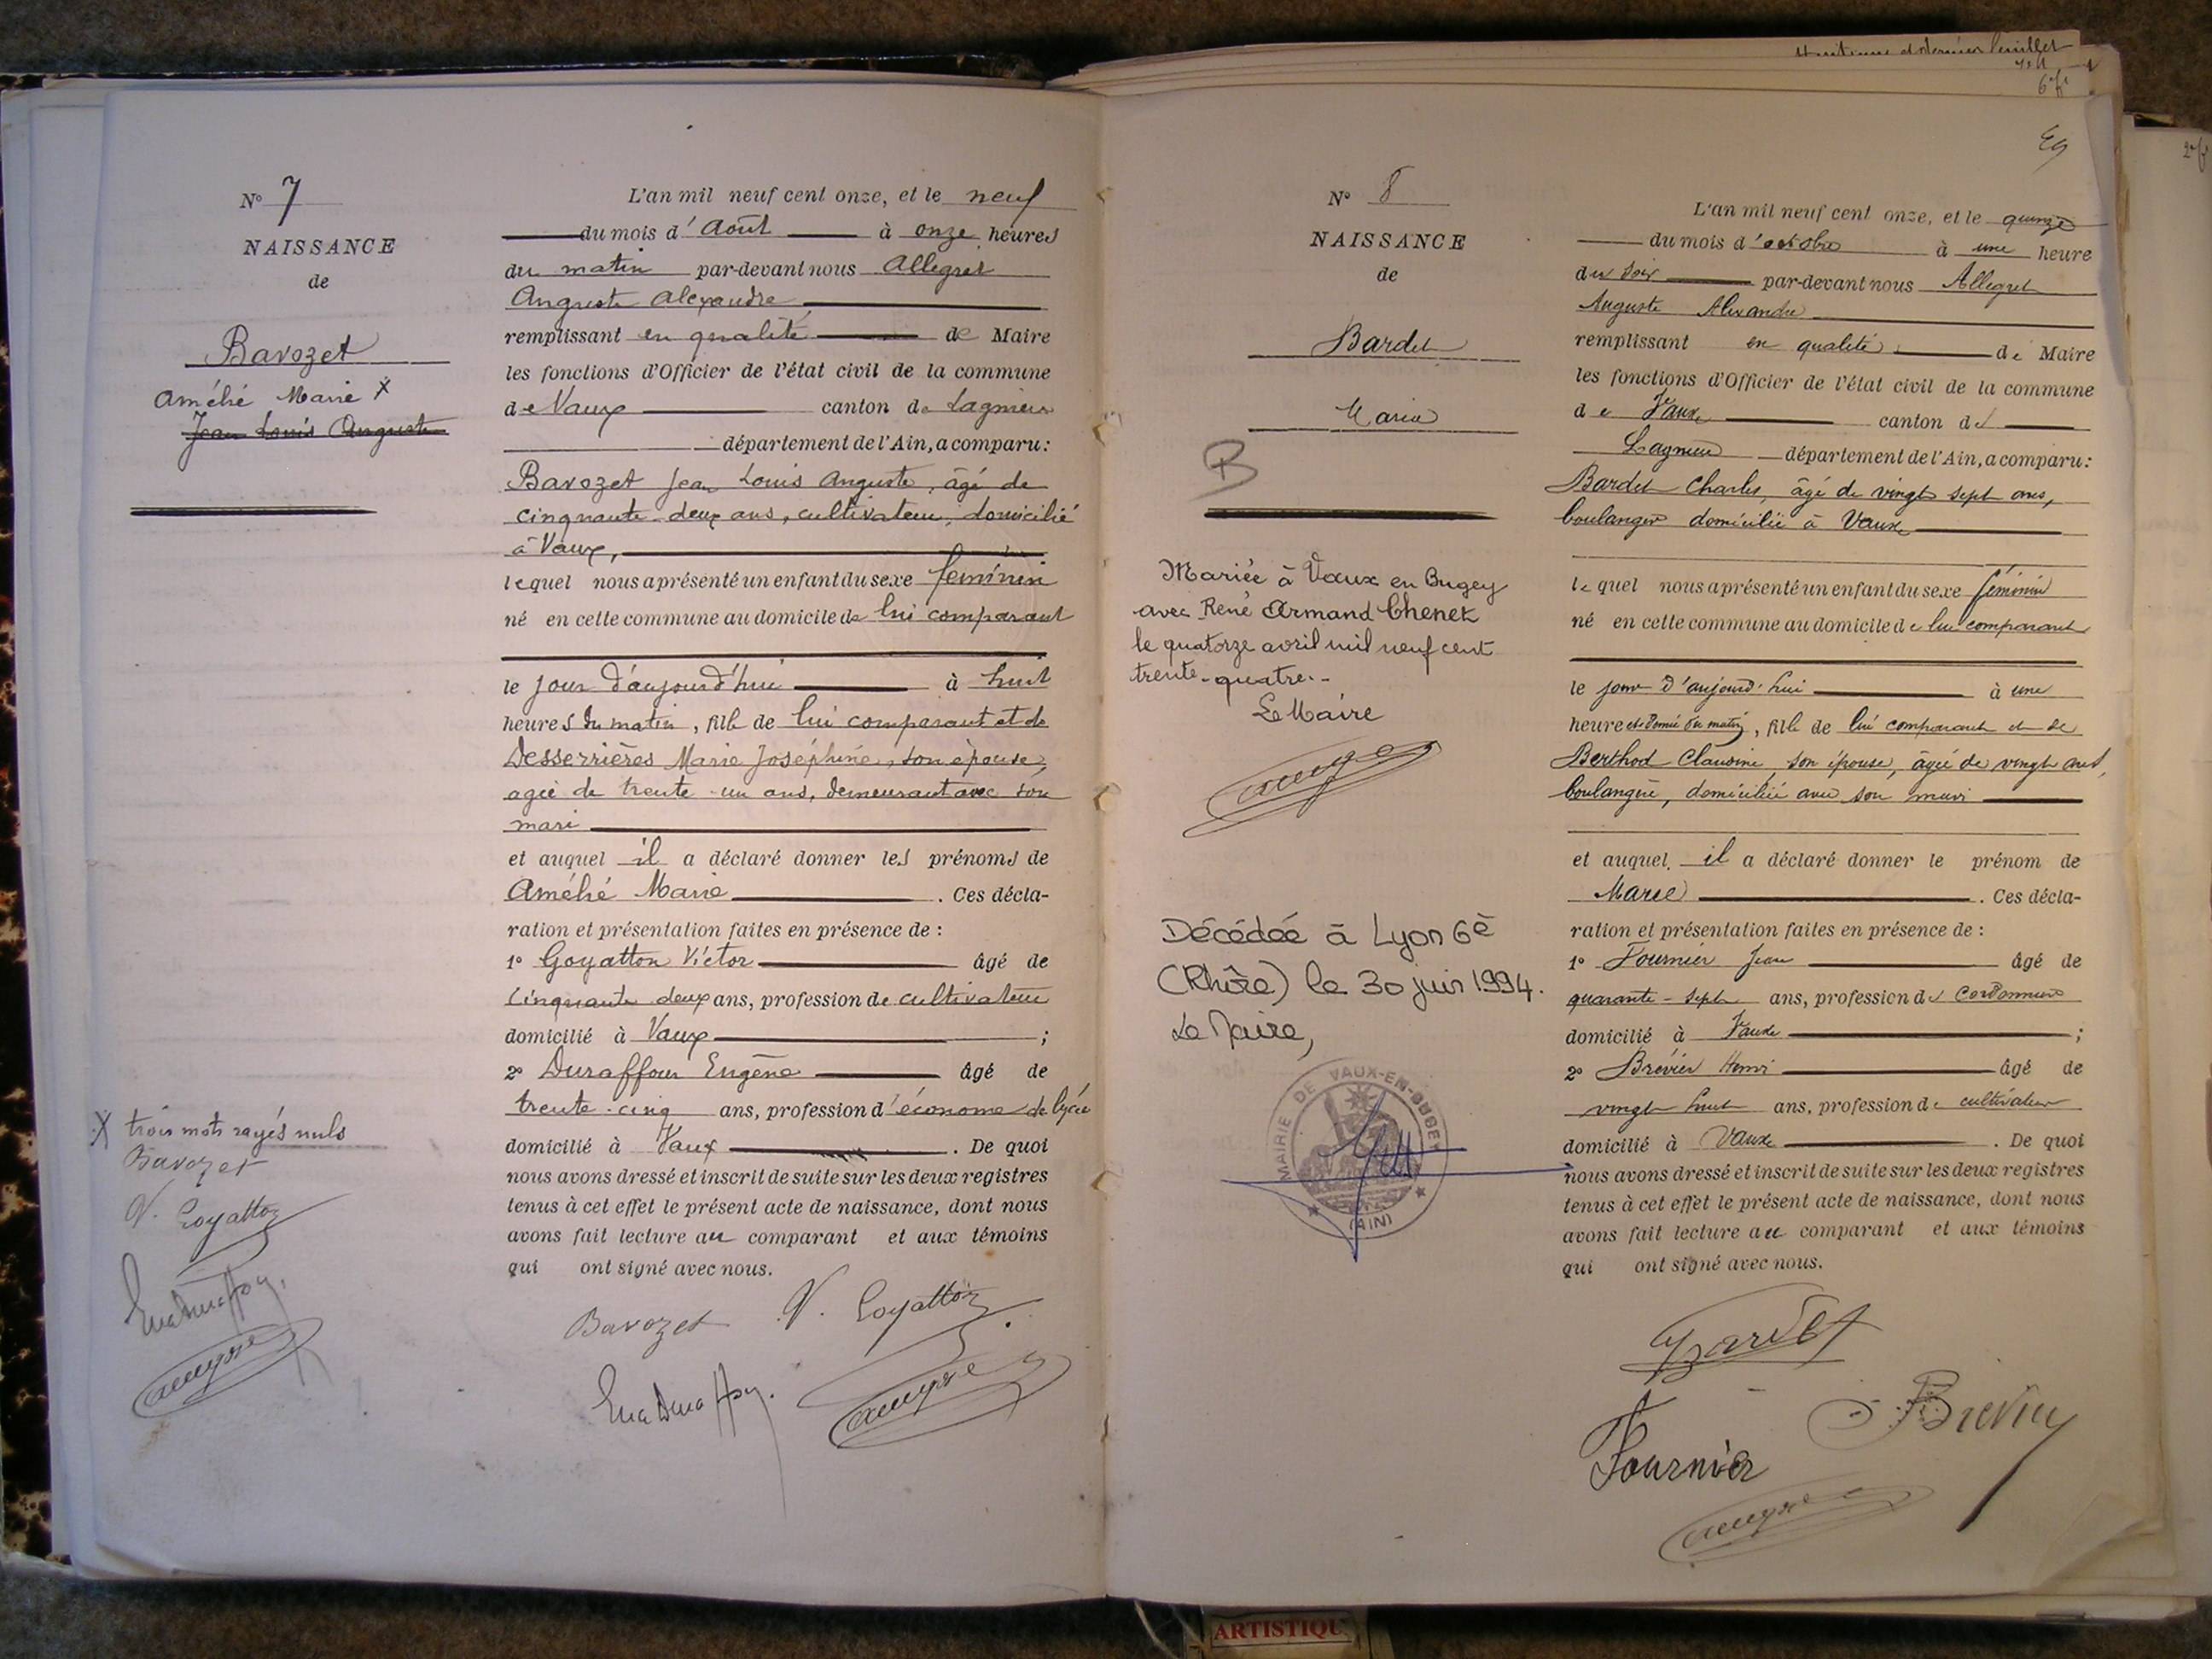 N° 7
NAISSANCE
de
Bavozet
Amélié Marie X
Jean Louis Auguste
X trois mots rayés nuls
Bavozet
V. Goyatton
L'an mil neuf cent onze, et le neuf
du mois d'Août à onze heures
du matin par-devant nous Allegret
Auguste Alexandre
remplissant en qualité de Maire
les fonctions d'Officier de l'état civil de la commune
de Vaux canton de Lagnieu
département de l'Ain, a comparu:
Bavozet Jean Louis Auguste, âgé de
cinquante-deux ans, cultivateur, domicilié
à Vaux,
lequel nous a présenté un enfant du sexe féminin
né en cette commune au domicile de lui comparant
le jour d'aujourd'hui à huit
heures du matin, fille de lui comparant et de
Desserrières Marie Joséphine, son épouse,
agée de trente-un ans, demeurant avec son
mari
et auquel il a déclaré donner les prénoms de
Amélié Marie. Ces décla-
ration et présentation faites en présence de :
1° Goyatton Victor âgé de
cinquante deux ans, profession de cultivateur
domicilié à Vaux ;
2° Duraffour Eugène âgé de
trente-cinq ans, profession d'économe de lycée
domicilié à Vaux. De quoi
nous avons dressé et inscrit de suite sur les deux registres
tenus à cet effet le présent acte de naissance, dont nous
avons fait lecture au comparant et aux témoins
qui ont signé avec nous.
Bavozet V. Goyatton
N° 8
NAISSANCE
de
Bardet
Maria
B
Mariée à Vaux en Bugey
avec René Armand Chenet
le quatorze avril mil neuf cent
trente-quatre.-
Le Maire
Décédée à Lyon 6è
(Rhône) le 30 juin 1994.
Le Maire,
MAIRIE DE VAUX-EN-BUGEY
(AIN)
L'an mil neuf cent onze, et le quinze
du mois d'octobre à une heure
du soir par-devant nous Allegret
Auguste Alexandre
remplissant en qualité de Maire
les fonctions d'Officier de l'état civil de la commune
de Vaux canton de
Lagnieu département de l'Ain, a comparu:
Bardet Charles, âgé de vingt sept ans,
boulanger domicilié à Vaux
lequel nous a présenté un enfant du sexe féminin
né en cette commune au domicile de lui comparant
le jour d'aujourd'hui à une
heure et demie du matin, fille de lui comparant et de
Berthod Claudine son épouse, âgée de vingt ans,
boulangère, domiciliée avec son mari
et auquel il a déclaré donner le prénom de
Maria. Ces décla-
ration et présentation faites en présence de :
1° Fournier Jean âgé de
quarante-sept ans, profession de cordonnier
domicilié à Vaux ;
2° Brévier Henri âgé de
vingt huit ans, profession de cultivateur
domicilié à Vaux. De quoi
nous avons dressé et inscrit de suite sur les deux registres
tenus à cet effet le présent acte de naissance, dont nous
avons fait lecture au comparant et aux témoins
qui ont signé avec nous.
Bardet
Fournier
ARTISTIQU